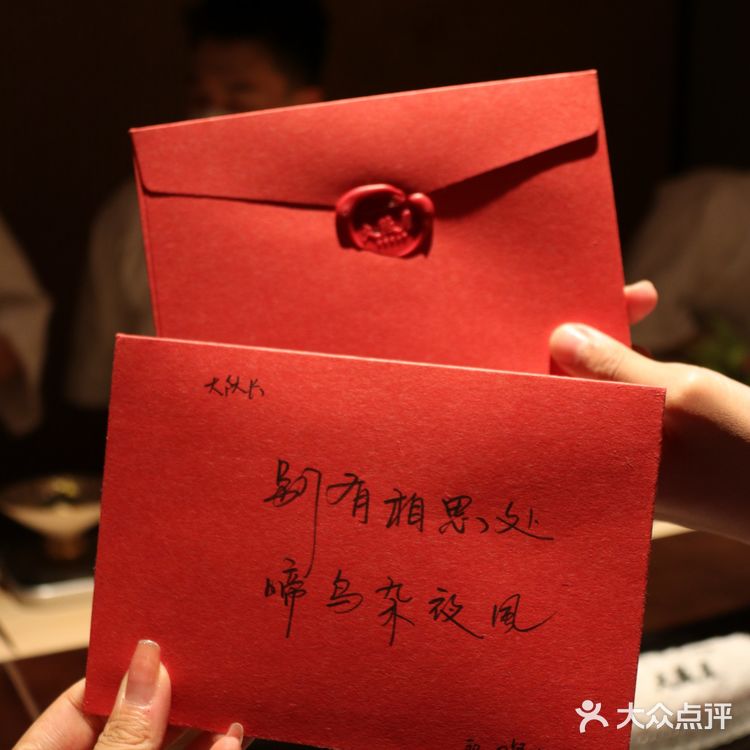 大队长
别有相思处
啼鸟杂夜风
大众点评